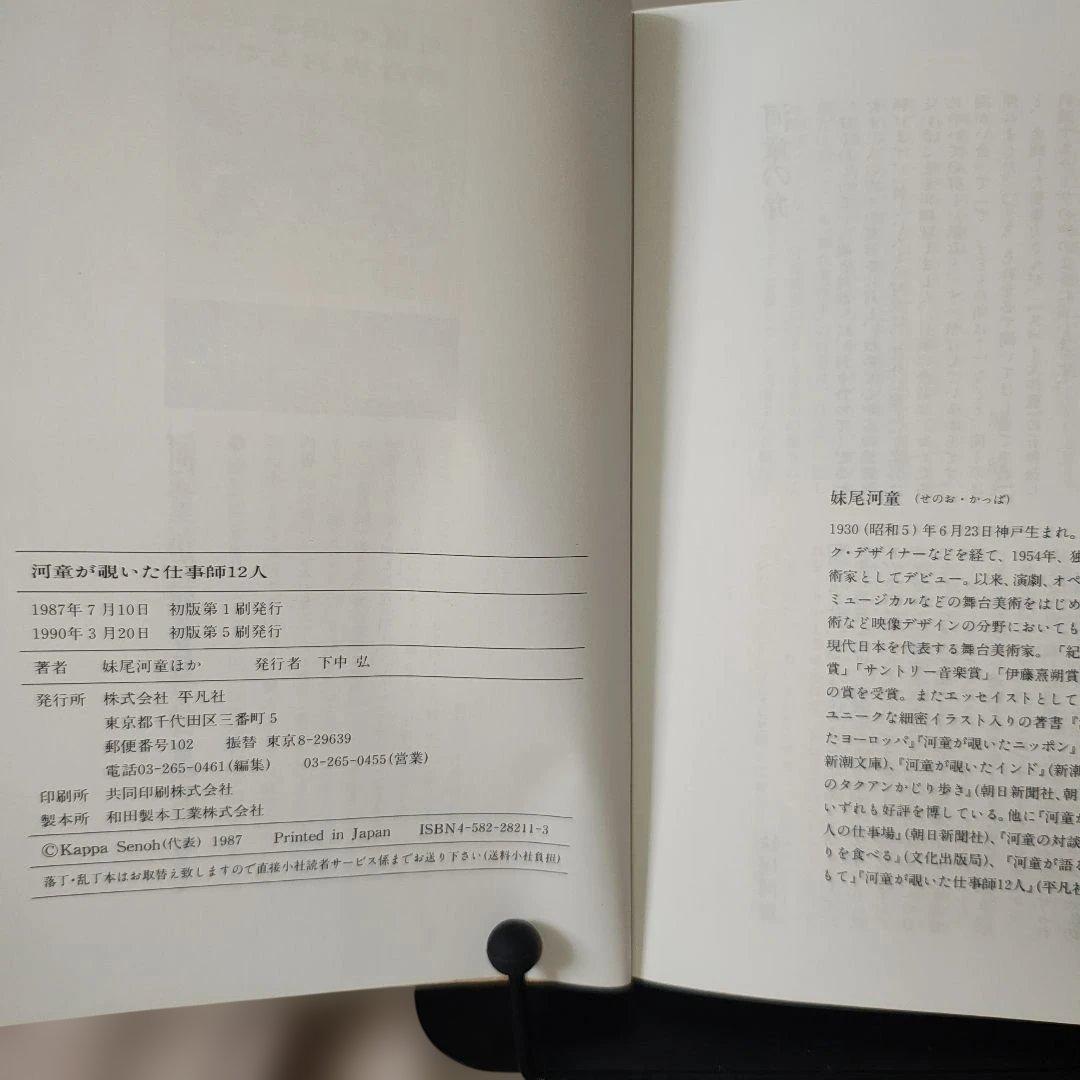 河童が覗いた仕事師12人
1987年7月10日 初版第1刷発行
1990年3月20日 初版第5刷発行
著者 妹尾河童ほか 発行者 下中 弘
発行所 株式会社 平凡社
東京都千代田区三番町5
郵便番号102 振替 東京8-29639
電話03-265-0461(編集) 03-265-0455(営業)
印刷所 共同印刷株式会社
製本所 和田製本工業株式会社
©Kappa Senoh(代表) 1987 Printed in Japan ISBN4-582-28211-3
落丁・乱丁本はお取替え致しますので直接小社読者サービス係までお送り下さい(送料小社負担)
妹尾河童 (せのお・かっぱ)
1930(昭和5)年6月23日神戸生まれ。
ク・デザイナーなどを経て、1954年、独
術家としてデビュー。以来、演劇、オペ
ミュージカルなどの舞台美術をはじめ
術など映像デザインの分野においても
現代日本を代表する舞台美術家。「紀
賞」「サントリー音楽賞」「伊藤熹朔賞
の賞を受賞。またエッセイストとして
ユニークな細密イラスト入りの著書『
たヨーロッパ』『河童が覗いたニッポン』
新潮文庫)、『河童が覗いたインド』(新潮
のタクアンかじり歩き』(朝日新聞社、朝
いずれも好評を博している。他に『河童が
人の仕事場』(朝日新聞社)、『河童の対談
りを食べる』(文化出版局)、『河童が語る
もて』『河童が覗いた仕事師12人』(平凡社